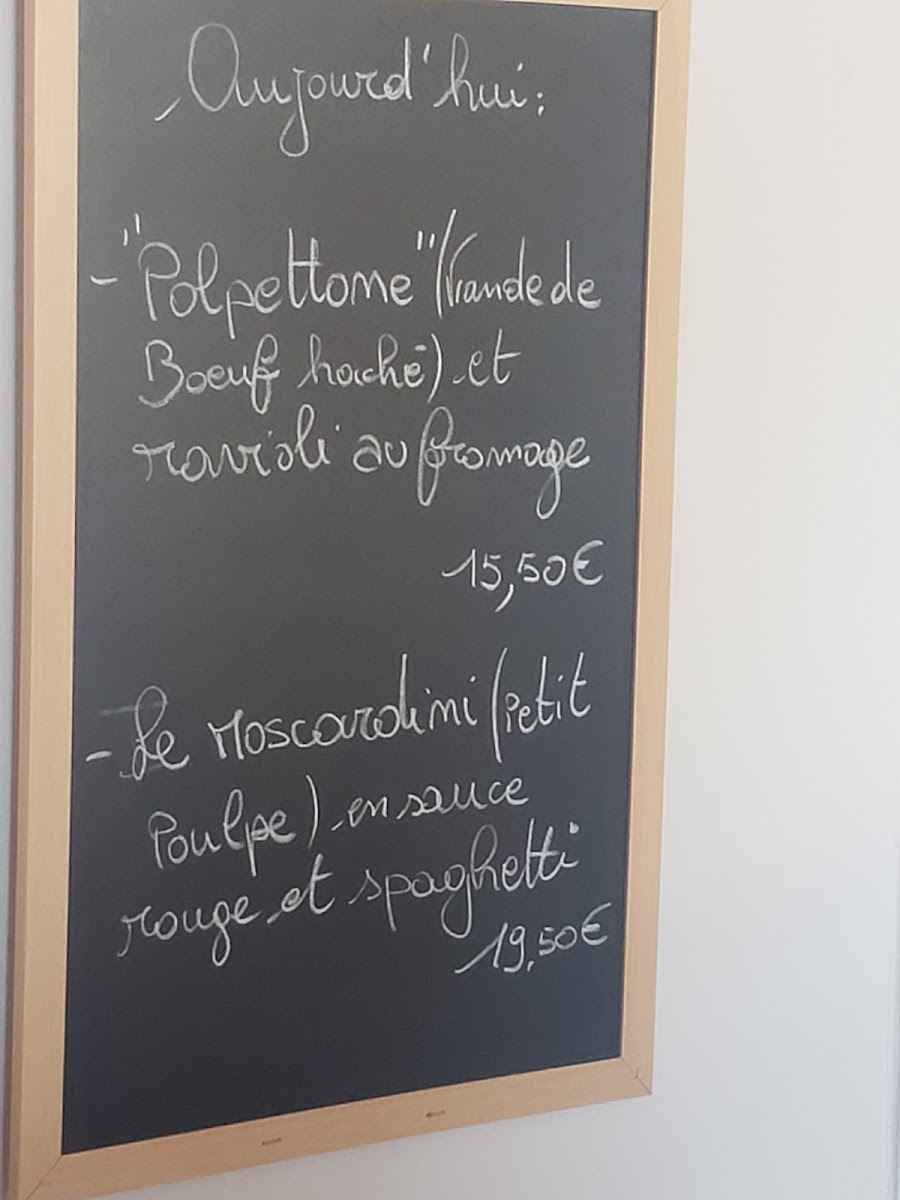 Aujourd'hui:
- "Polpettone" (Viande de
Boeuf haché) et
ravioli au fromage
15,50€
- Le Moscardini (Petit
Poulpe) en sauce
rouge et spaghetti
19,50€